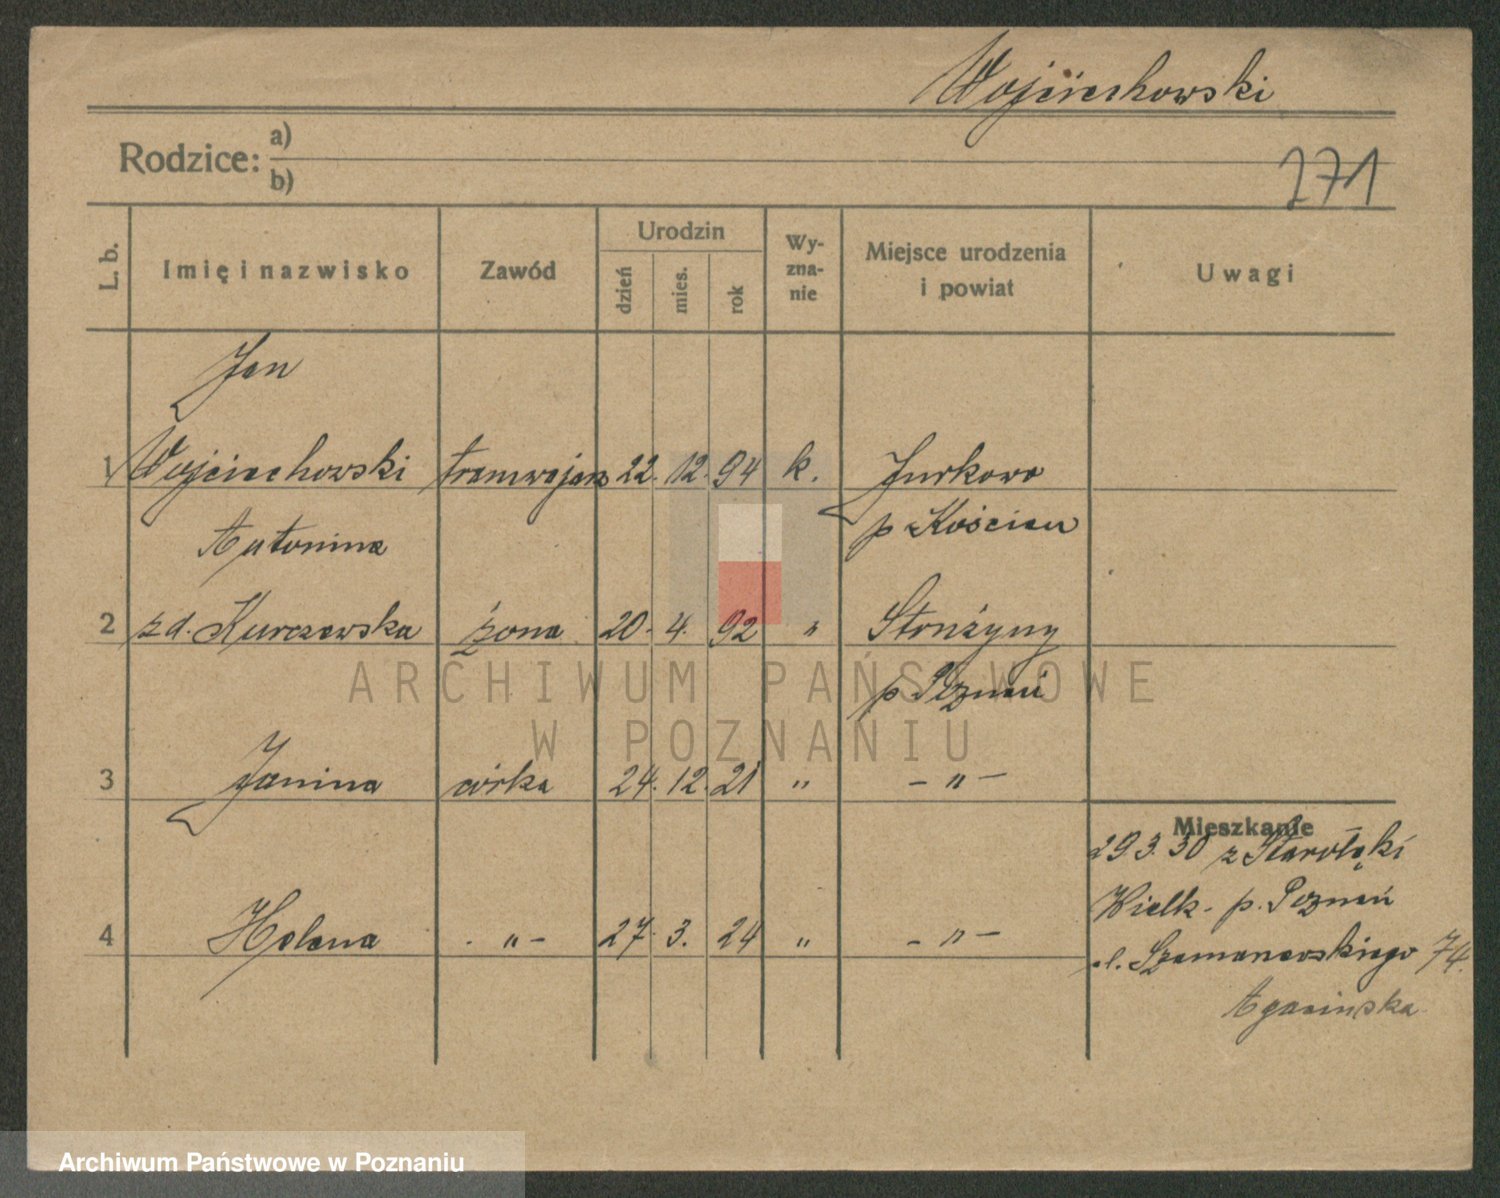 Wojciechowski
Rodzice: a)
b)
271
L. b.
Imię i nazwisko
Zawód
Urodzin
dzień
mies.
rok
Wy-
zna-
nie
Miejsce urodzenia
i powiat
Uwagi
Jan
1 Wojciechowski tramwajarz 22. 12. 94 k. Jurkowo
p Kościan
Antonina
2 z d. Kurczewska żona 20. 4. 92 "
p Poznań
3 Janina córka 24. 12. 21 " - " -
Mieszkanie
29 3. 30 z Starołęki
Wielk. p. Poznań
4 Helena - " - 27. 3. 24 " - " -
ul. Szamarzewskiego 74.
ARCHIWUM PAŃSTWOWE
W POZNANIU
Archiwum Państwowe w Poznaniu